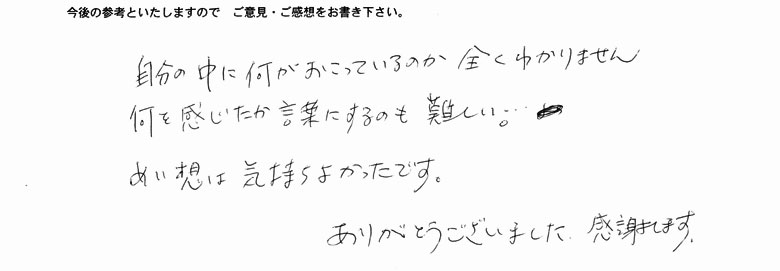 今後の参考といたしますので　ご意見・ご感想をお書き下さい。
自分の中に何がおこっているのか全くわかりません
何を感じたか言葉にするのも難しい。…
めい想は気持ちよかったです。
ありがとうございました。感謝します。